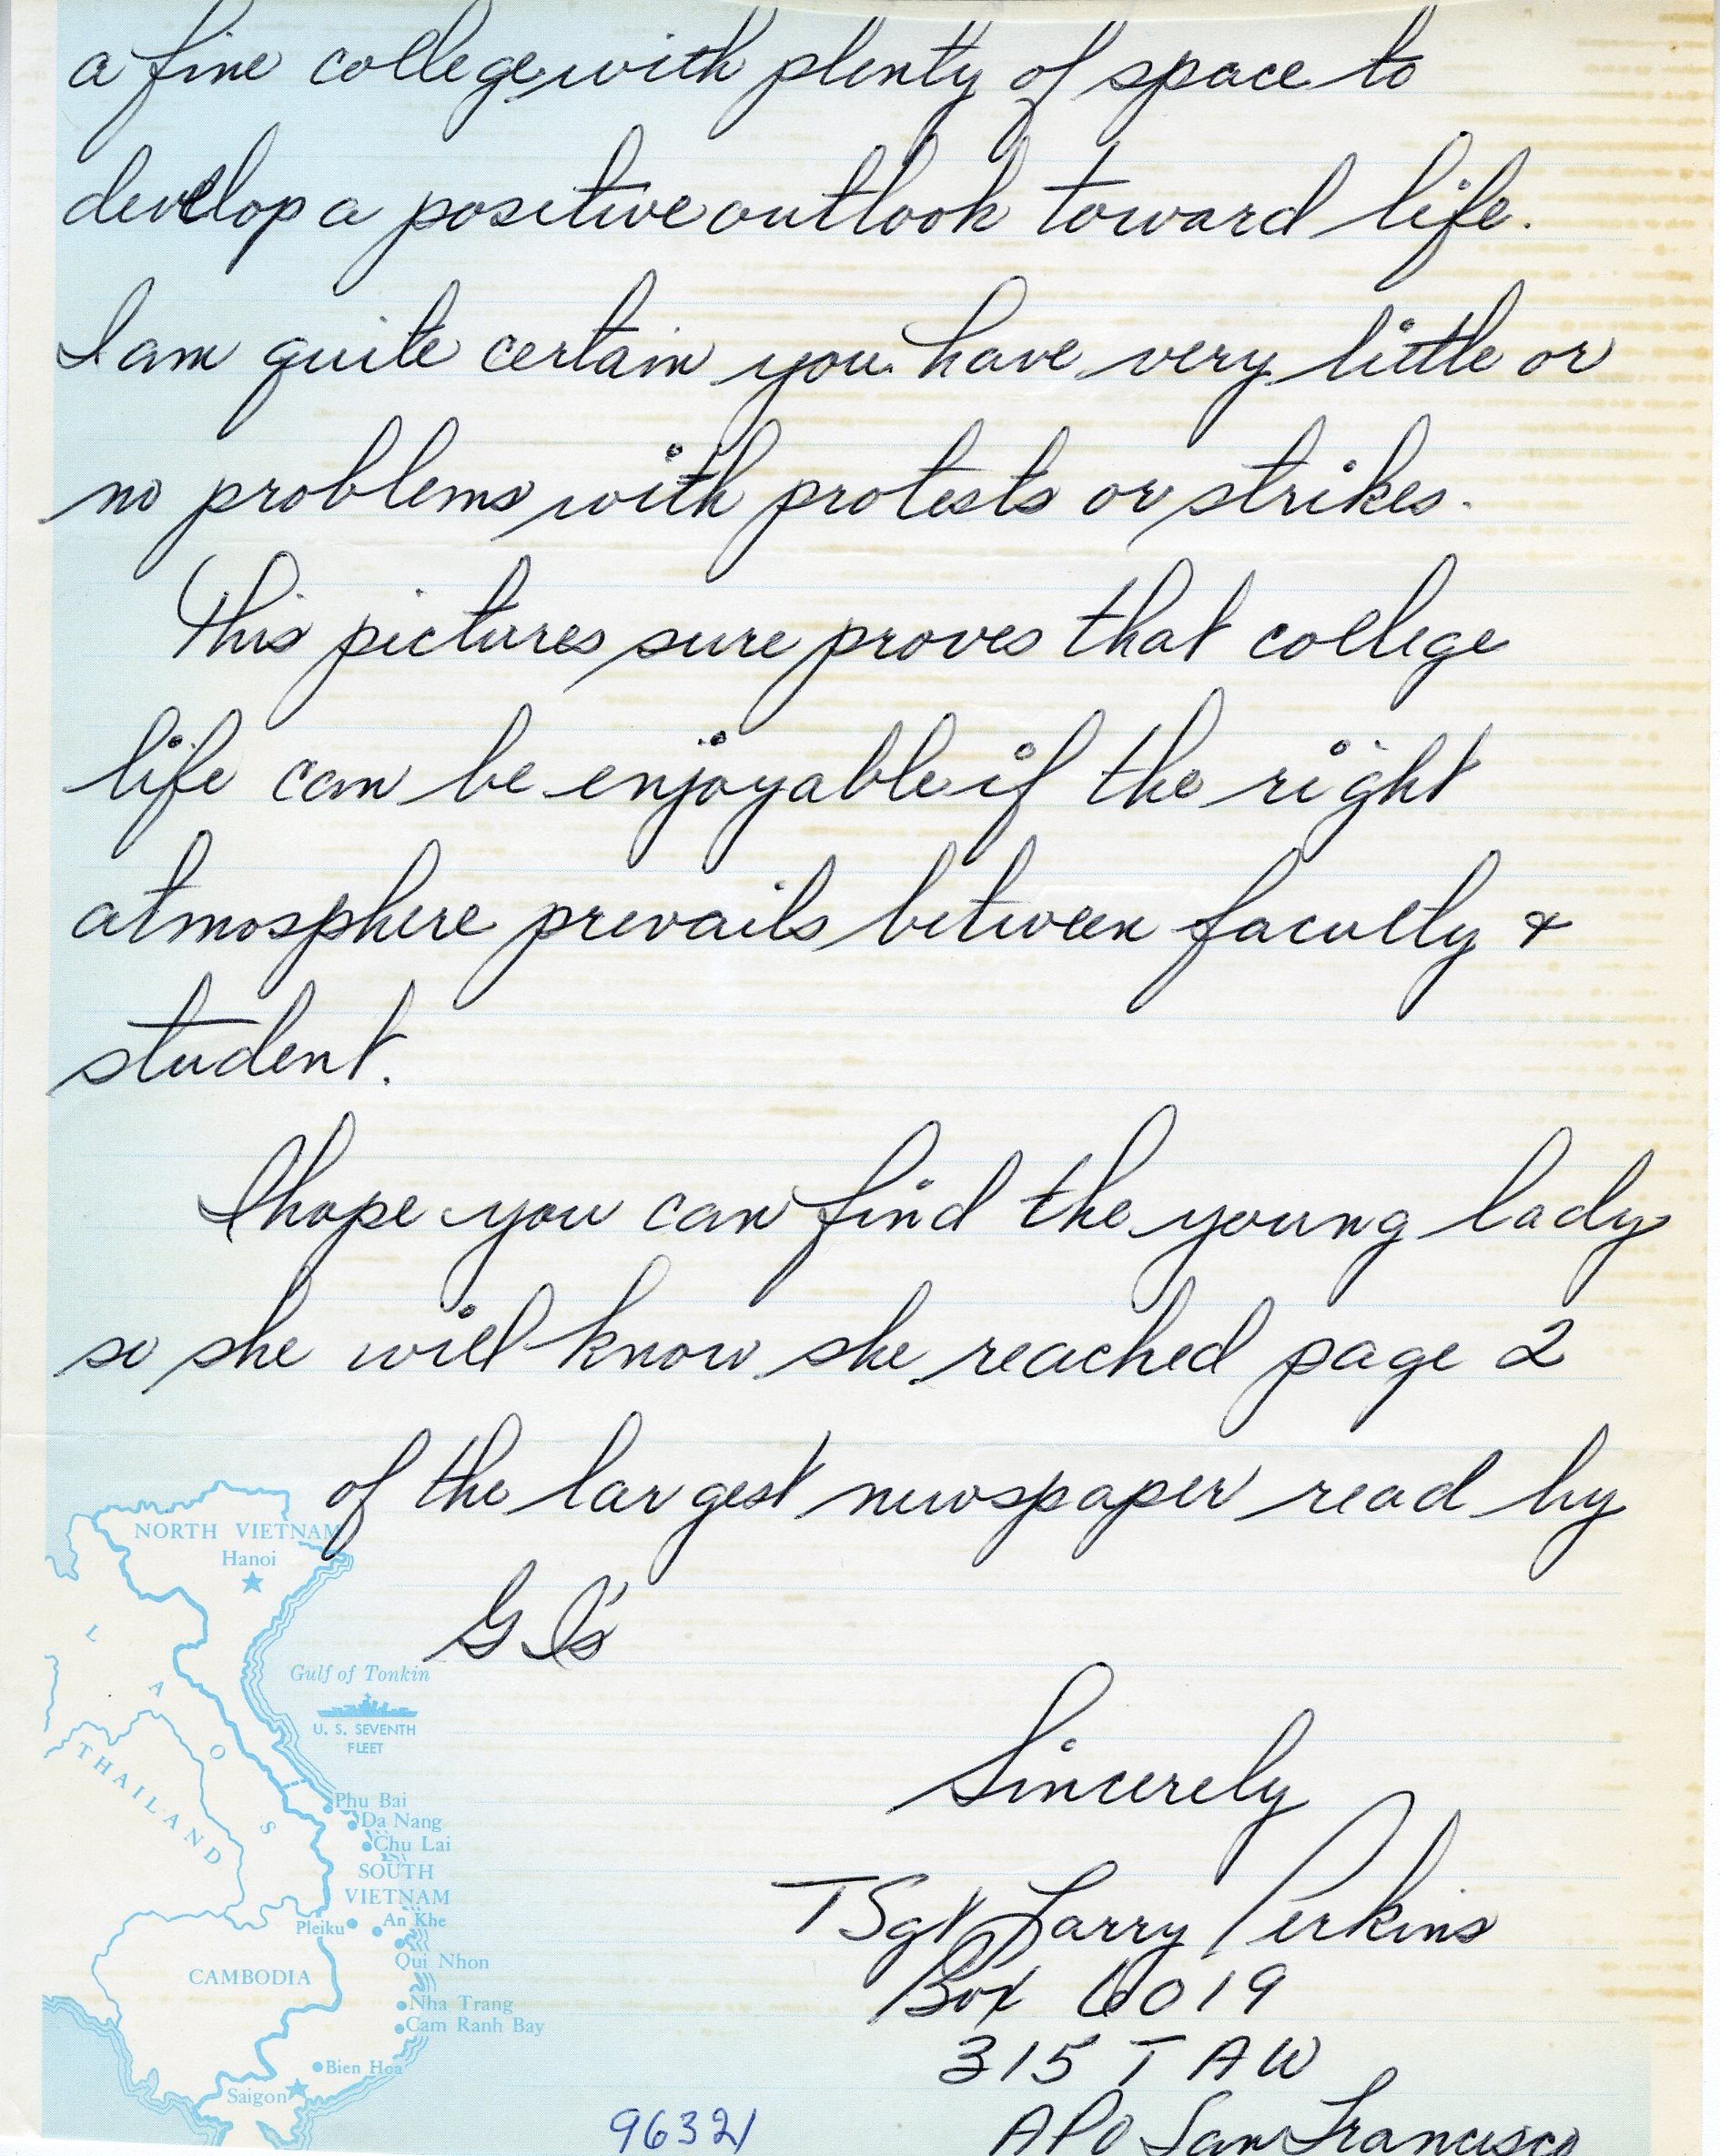 a fine college with plenty of space to
develop a positive outlook toward life.
I am quite certain you have very little or
no problems with protests or strikes.
This pictures sure proves that college
life can be enjoyable if the right
atmosphere prevails between faculty &
student.
I hope you can find the young lady
so she will know she reached page 2
of the largest newspaper read by
G I's
Sincerely
TSgt Larry Perkins
Box 6019
315 T A W
APO San Francisco
96321
NORTH VIETNAM
Hanoi
LAOS
Gulf of Tonkin
U. S. SEVENTH
FLEET
THAILAND
Phu Bai
Da Nang
Chu Lai
SOUTH
VIETNAM
Pleiku
An Khe
Qui Nhon
CAMBODIA
Nha Trang
Cam Ranh Bay
Bien Hoa
Saigon